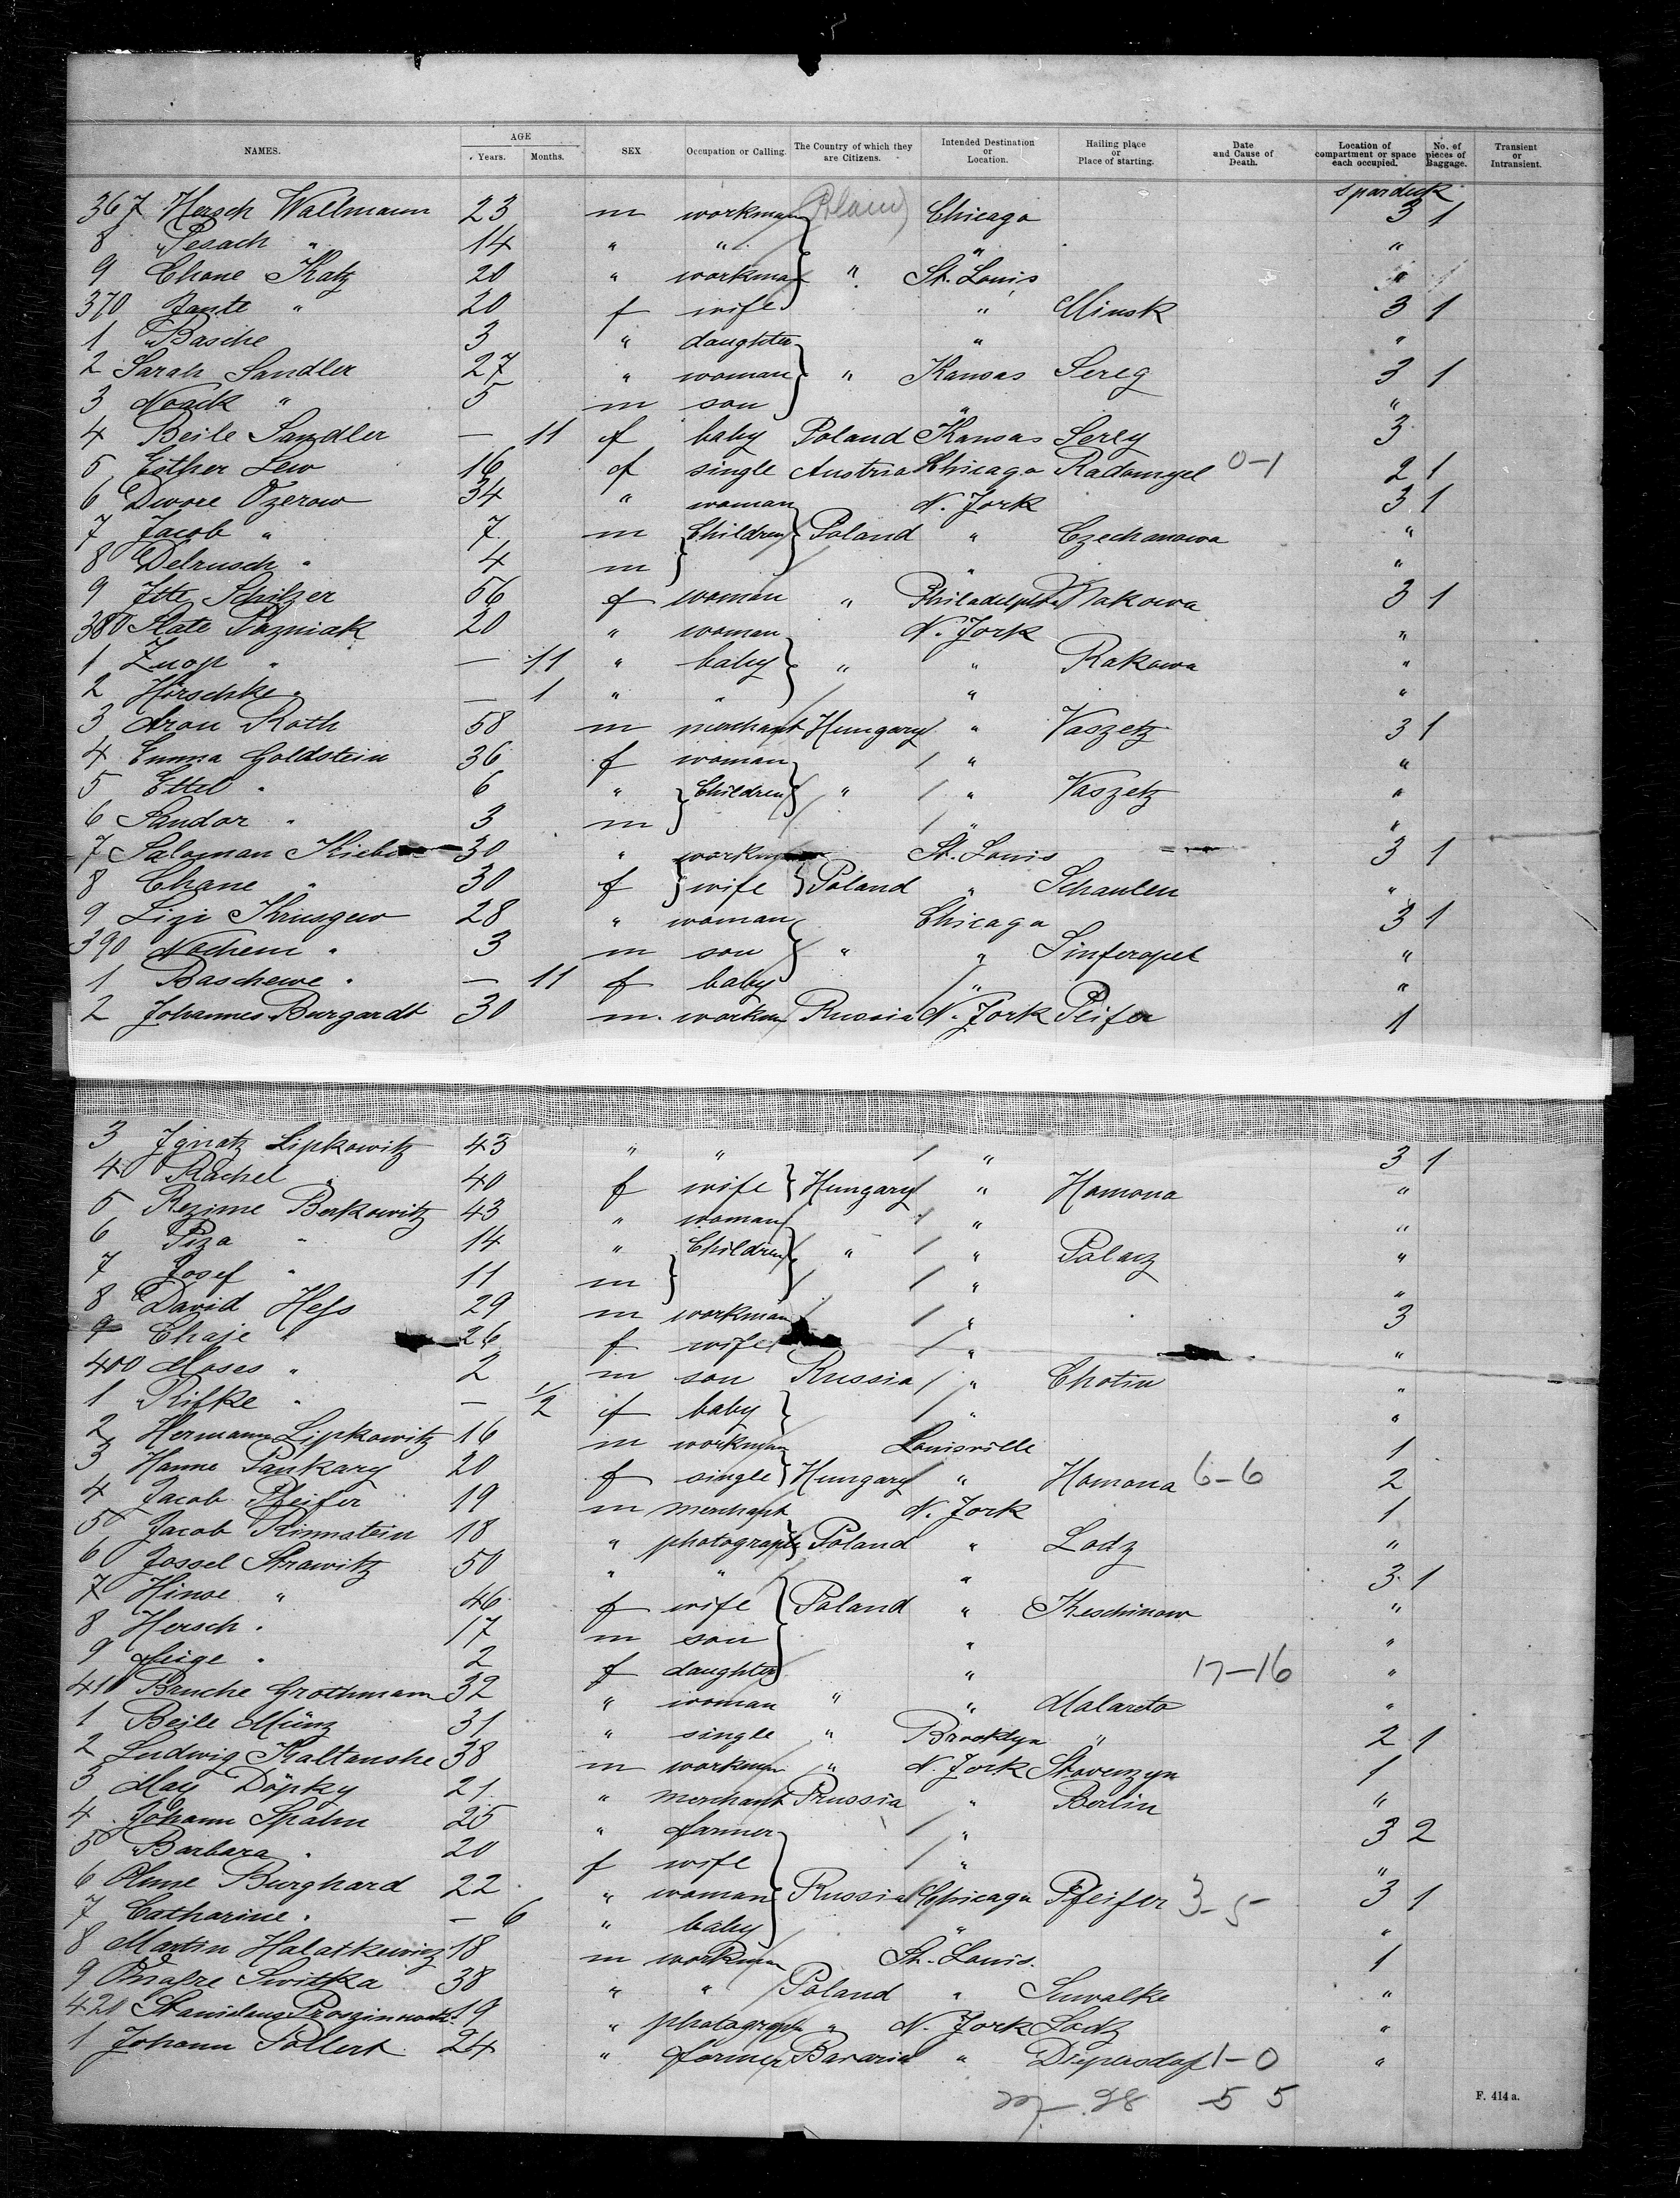 NAMES. AGE Years. Months. SEX Occupation or Calling. The Country of which they are Citizens. Intended Destination or Location. Hailing place or Place of starting. Date and Cause of Death. Location of compartment or space each occupied. No. of pieces of Baggage. Transient or Intransient.
spardeck
367 Hersch Wallmann 23 m workman Poland Chicago 3 1
8 Pesach " 14 " " " "
9 Chone Katz 20 " workman " St. Louis "
370 Jante " 20 f wife " Minsk 3 1
1 Basche 3 " daughter " "
2 Sarah Sandler 27 " woman " Kansas Sereg 3 1
3 Noack " 5 m son " "
4 Beile Sandler — 11 f baby Poland Kansas Serey 3
5 Esther Lew 16 f single Austria Chicago Radomysl 0-1 2 1
6 Dwore Ozerow 34 " woman N. York 3 1
7 Jacob " 7 m Children Poland " Czechanowa "
8 Delrusch " 4 m " "
9 Itte Schilzer 56 f woman " Philadelphia Makowa 3 1
380 Slate Pozniak 20 " woman N. York "
1 " — 11 " baby " " Rakowa "
2 Hirschke " — 1 " " " "
3 Aron Roth 58 m merchant Hungary " Vaszetz 3 1
4 Emma Goldstein 36 f woman " "
5 Ettel " 6 " Children " " Vaszetz "
6 Sandor " 3 m " "
7 Saloman 30 " workman St. Louis 3 1
8 Chane " 30 f wife Poland " Schaulen "
9 Lizi Krusgew 28 " woman Chicago 3 1
390 Nochem " 3 m son " " Sinferopel "
1 Baschewe " — 11 f baby " "
2 Johannes Burgardt 30 m. workm Russia N. York Peifer 1
3 Ignatz Lipkowitz 43 " " " 3 1
4 Rachel " 40 f wife Hungary " Homona "
5 Rezime Berkowitz 43 " woman " "
6 Piza " 14 " Children " " Palacz "
7 Josef " 11 m " "
8 David Hess 29 m workman " 3
9 Chaje " 26 f wife " "
400 Moses " 2 m son Russia " Chotin "
1 Rifke " — 1/2 f baby " "
2 Hermann Lipkowitz 16 m workman Louisville 1
3 Hanne Pankary 20 f single Hungary " Homona 6-6 2
4 Jacob Pfeifer 19 m merchant N. York 1
5 Jacob Rinnstein 18 " photograph Poland " Lodz "
6 Jossel Strawitz 50 " " " 3 1
7 Hinse " 46 f wife Poland " Keschinow "
8 Hersch " 17 m son " "
9 Feige " 2 f daughter " 17-16 "
410 Bruche Grothmann 32 " woman " " Malareto "
1 Beile Münz 31 " single " Brooklyn " 2 1
2 Ludwig Kaltenshe 38 m workman " N. York Stovenzyn 1
3 Max Döpky 21 " merchant Prussia " Berlin "
4 Johann Spahn 25 " farmer " 3 2
5 Barbara " 20 f wife " "
6 Burghard 22 " woman Russia Chicago Pfeifer 3-5 3 1
7 Catharine " — 6 " baby " "
8 Martin Halatkewicz 18 m workman St. Louis. 1
9 Onafre Switka 38 " " Poland " Suwalke "
420 Stanislaus 19 " photograph " N. York Lodz "
1 Johann Pollert 24 " farmer Bavaria " 1-0 "
28 55
F. 414 a.